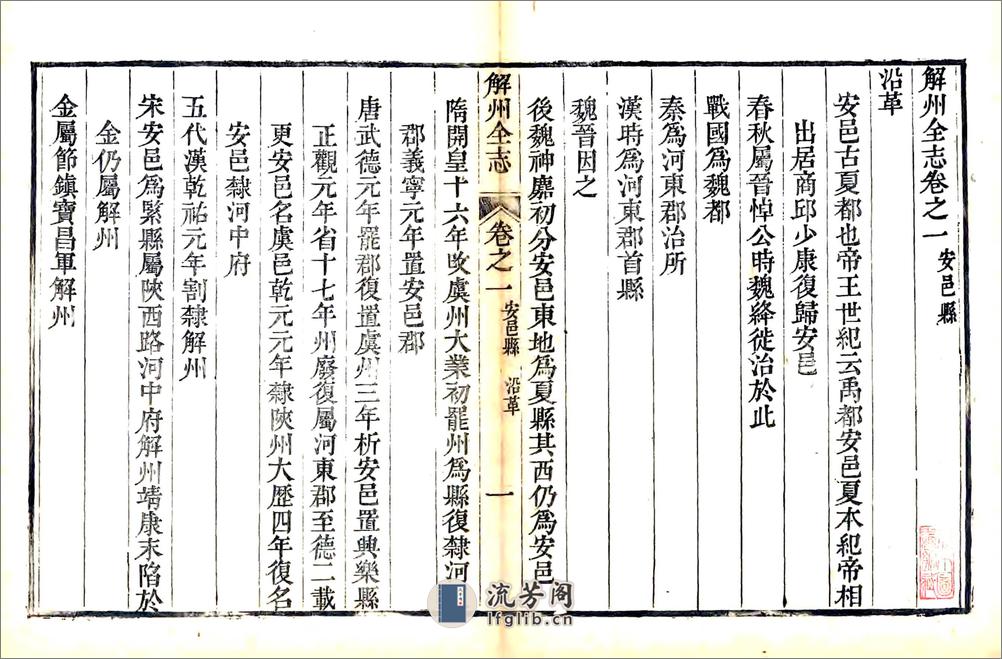 解州全志卷之一 安邑縣
沿革
安邑古夏都也帝王世紀云禹都安邑夏本紀帝相
出居商邱少康復歸安邑
春秋屬晉悼公時魏絳徙治於此
戰國爲魏都
秦爲河東郡治所
漢時爲河東郡首縣
魏晉因之
後魏神䴥初分安邑東地爲夏縣其西仍爲安邑
解州全志 卷之一 安邑縣 沿革 一
隋開皇十六年改虞州大業初罷州爲縣復隸河
郡義寧元年置安邑郡
唐武德元年罷郡復置虞州三年析安邑置興樂縣
正觀元年省十七年州廢復屬河東郡至德二載
更安邑名虞邑乾元元年隸陝州大歷四年復名
安邑隸河中府
五代漢乾祐元年割隸解州
宋安邑爲緊縣屬陝西路河中府解州靖康末陷於
金仍屬解州
金屬節鎮寶昌軍解州
流芳阁
lfglib.cn